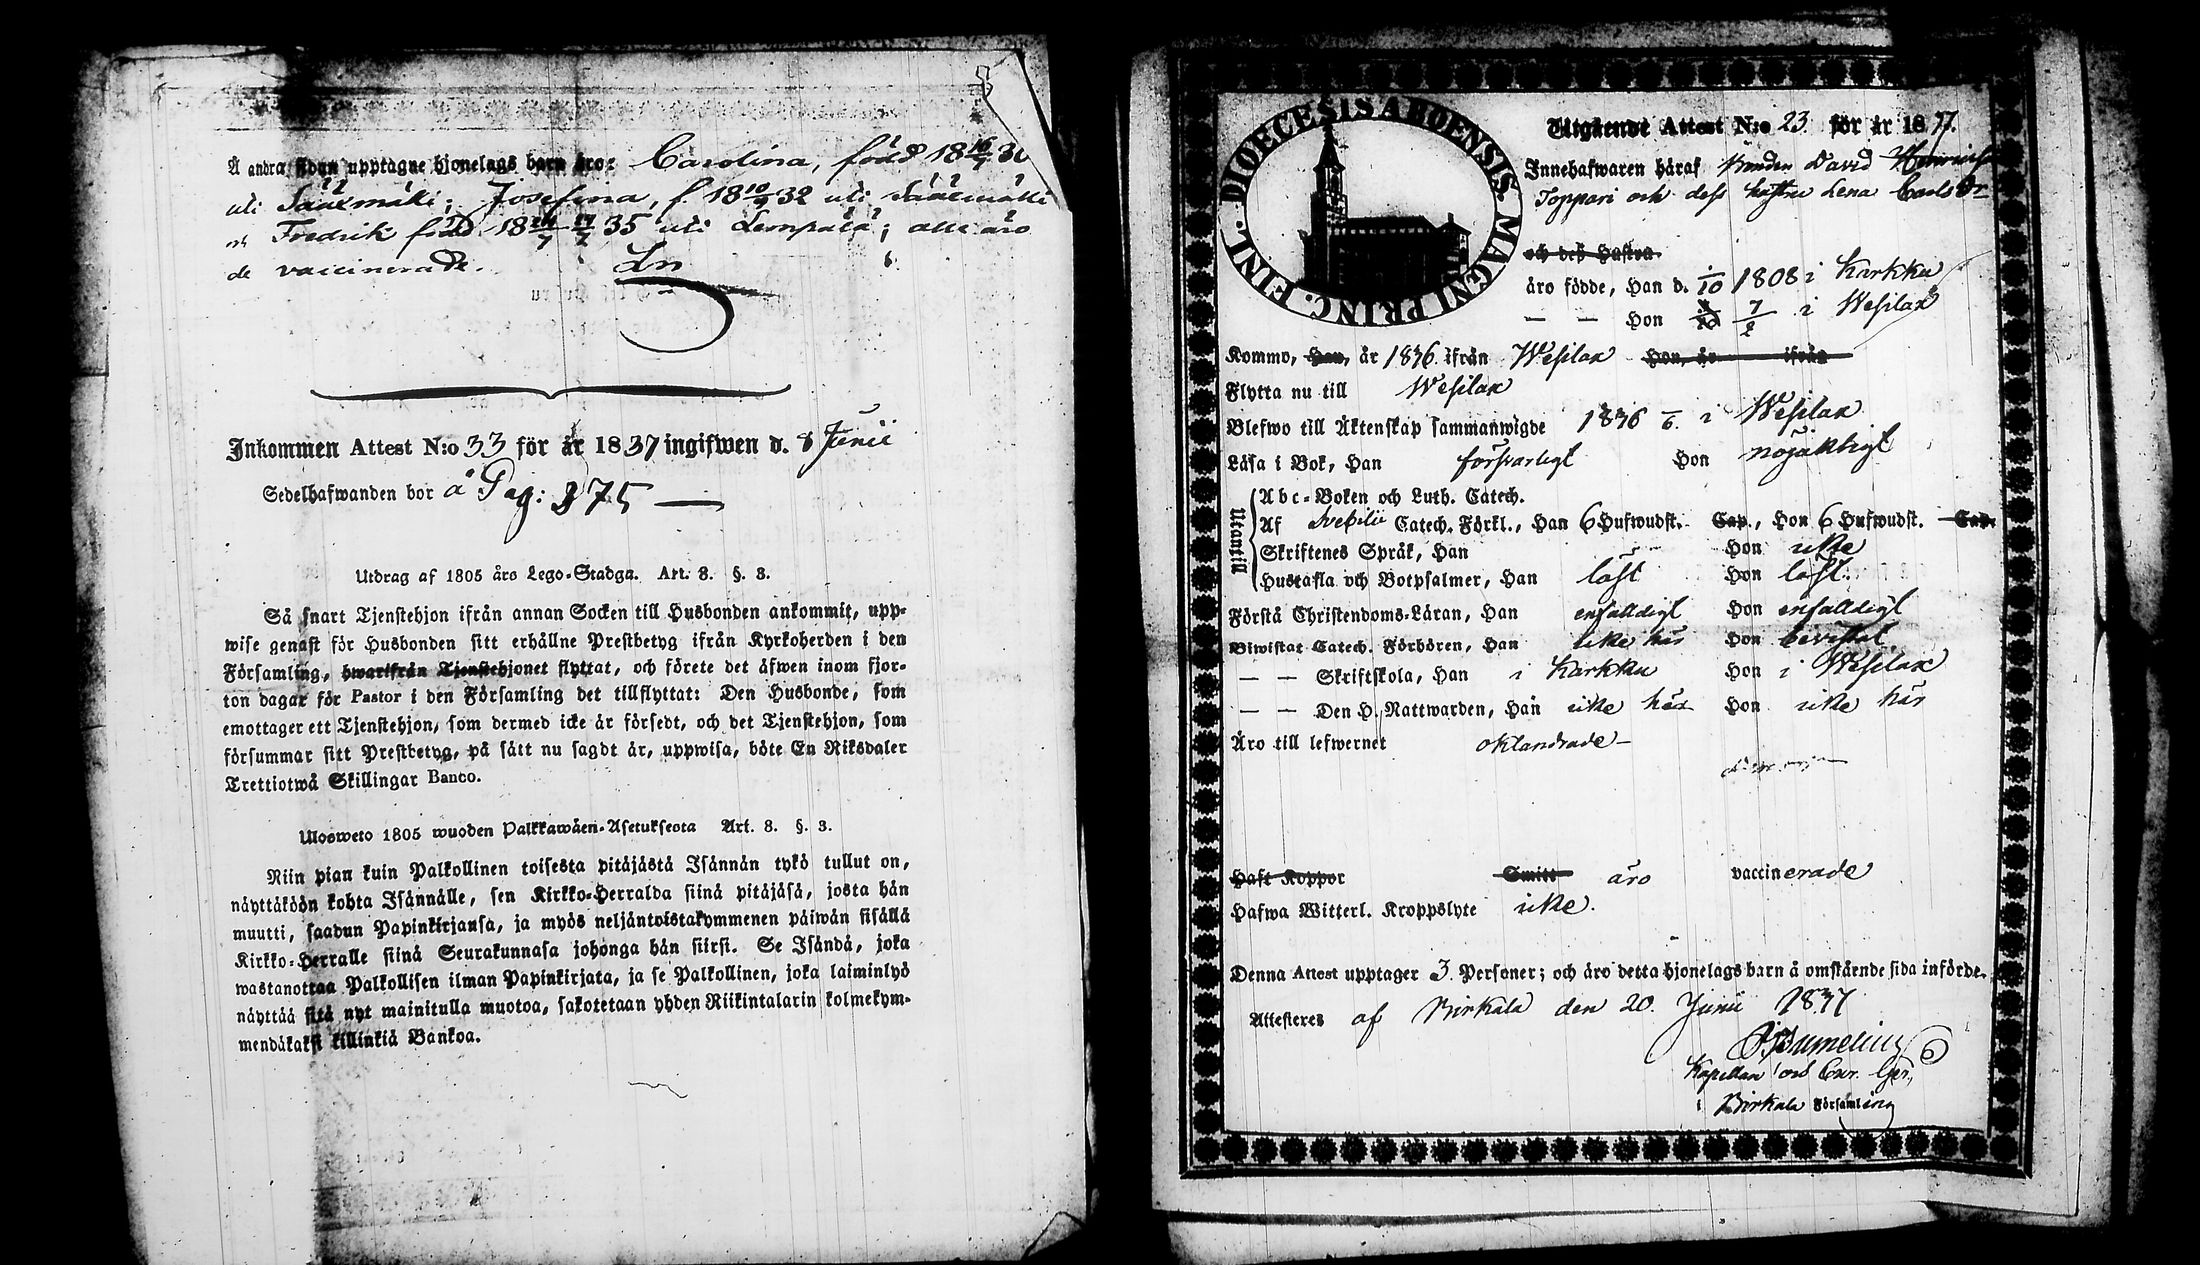 Å andra sidan upptagne hjonelags barn äro: Carolina, född 18 16/7 30
uti Sääxmäki; Josefina, f. 18 10/9 32 uti Sääxmäki
och Fredrik född 18 35 uti Lempälä; alla äro
de vaccinerade.
Inkommen Attest N:o 33 för år 1837 ingifwen d. 8 Junii
Sedelhafwanden bor å Pag: 375
Utdrag af 1805 års Lego-Stadga. Art. 8. §. 3.
Så snart Tjenstehjon ifrån annan Socken till Husbonden ankommit, upp-
wise genast för Husbonden sitt erhållne Prestbetyg ifrån Kyrkoherden i den
Församling, hwarifrån Tjenstehjonet flyttat, och förete det äfwen inom fjor-
ton dagar för Pastor i den Församling det tillflyttat: Den Husbonde, som
emottager ett Tjenstehjon, som dermed icke är försedt, och det Tjenstehjon, som
försummar sitt Prestbetyg, på sätt nu sagdt är, uppwisa, böte En Riksdaler
Trettiotwå Skillingar Banco.
Ulosweto 1805 wuoden Palkkawäen-Asetuksesta Art. 8. §. 3.
Niin pian kuin Palkollinen toisesta pitäjästä Isännän tykö tullut on,
näyttäköön kohta Isännälle, sen Kirkko-Herralda siinä pitäjäsä, josta hän
muutti, saadun Papinkirjansa, ja myös neljäntoistakymmenen päiwän sisällä
Kirkko-Herralle siinä Seurakunnasa johonga hän siirsi. Se Isändä, joka
wastanottaa Palkollisen ilman Papinkirjata, ja se Palkollinen, joka laiminlyö
näyttää sitä nyt mainitulla muotoa, sakotetaan yhden Riikintalarin kolmekym-
mendäkaksi killinkiä Bankoa.
DIOECESIS ABOENSIS. MAGNI PRINC. FINL.
Utgående Attest N:o 23 för år 1837.
Innehafwaren häraf Bonden David Henriksson
Toppari och dess hustru Lena Carlsdr
och deß Hustru
äro födde, Han d. 1/10 1808 i Karkku
— — Hon 7/2 i Wesilax
Kommo, Han, år 1836 ifrån Wesilax Hon, år ifrån
Flytta nu till Wesilax
Blefwo till Äktenskap sammanwigde 1836 i Wesilax
Läsa i Bok, Han försvarligt Hon nöjaktligt
Utantill
Abc-Boken och Luth. Catech.
Af Svebilii Catech. Förkl., Han 6 Hufwudst. Cap., Hon 6 Hufwudst. Cap.
Skriftenes Språk, Han Hon icke
Hustafla och Botpsalmer, Han läst Hon läst.
Förstå Christendoms-Läran, Han enfalldigt Hon enfalldigt
Biwistat Catech. Förhören, Han icke här Hon bevistat
— — Skriftskola, Han i Karkku Hon i Wesilax
— — Den H. Nattwarden, Han icke här Hon icke här
Äro till lefwernet oklandrade
Haft Koppor Smitt äro vaccinerade
Hafwa Witterl. Kroppslyte icke.
Denna Attest upptager 3 Personer; och äro detta hjonelags barn å omstående sida införde.
Attesteres af Birkala den 20. Junii 1837
Kapellan
i Birkala Församling